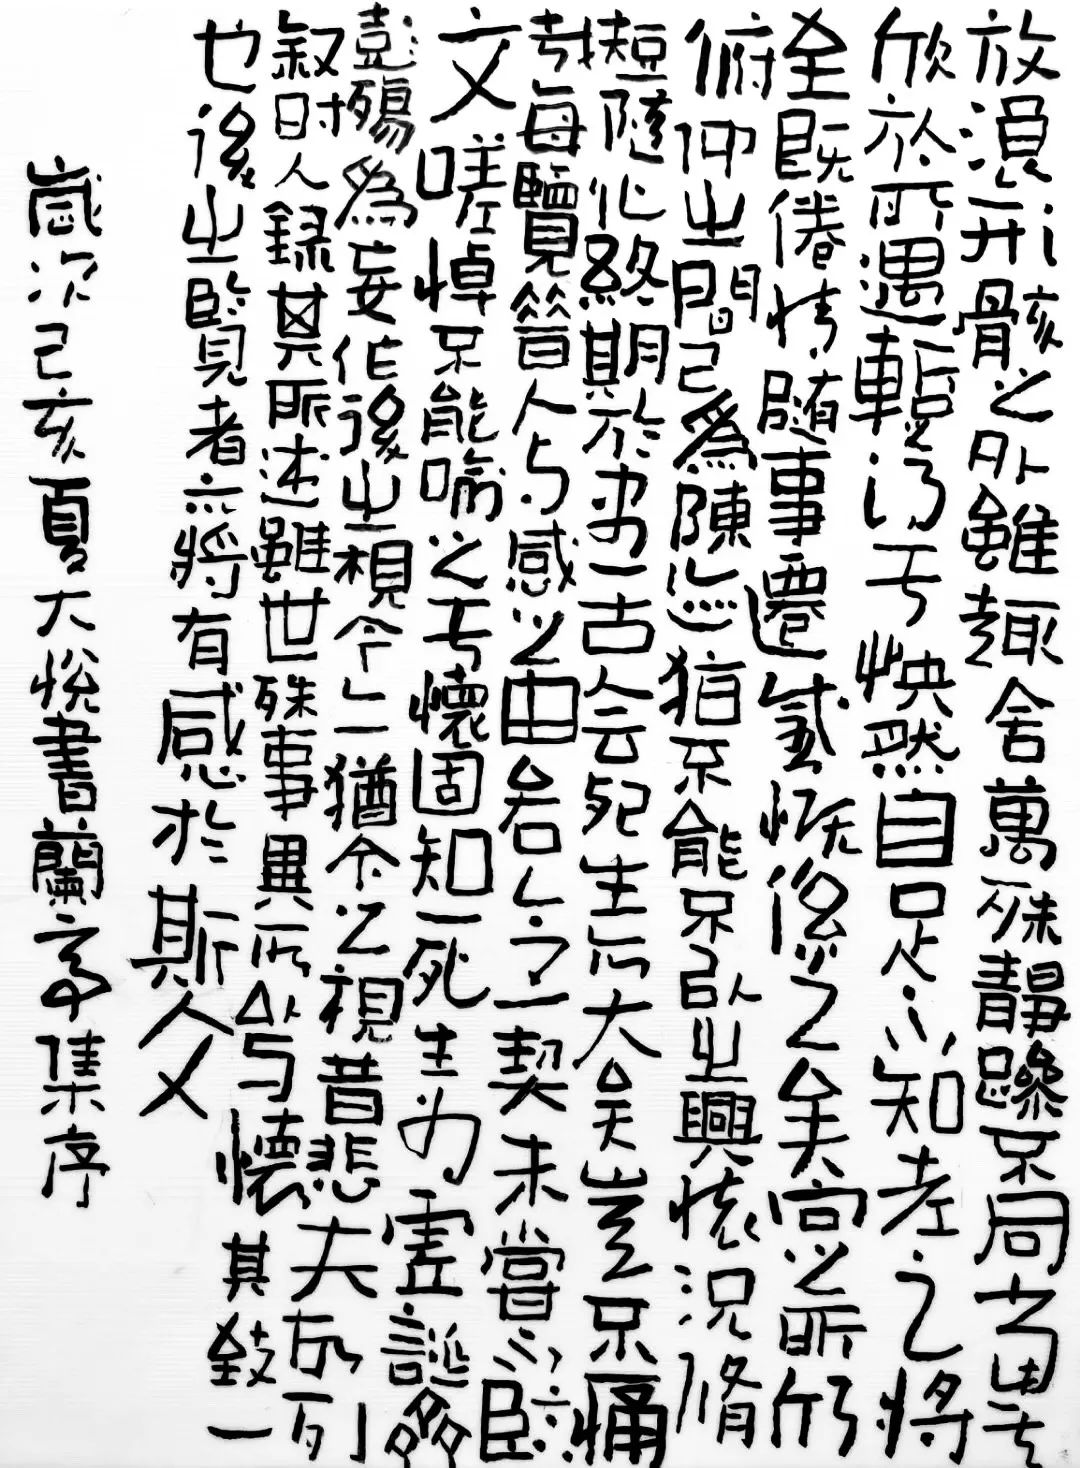 放浪形骸之外雖趣舍萬殊靜躁不同當其
欣於所遇暫得于快然自足不知老之將
至既倦情隨事遷感慨係之矣向之所欣
俯仰之間已為陳迹猶不能不以之興懷況脩
短隨化終期於盡古人云死生亦大矣豈不痛
哉每覽昔人與感之由若合之一契未嘗不臨
文嗟悼不能喻之于懷固知一死生為虛誕齊
彭殤為妄作後之視今亦猶今之視昔悲夫故列
敘時人錄其所述雖世殊事異所以與懷其致一
也後之覽者亦將有感於斯文
歲次己亥夏大悅書蘭亭集序